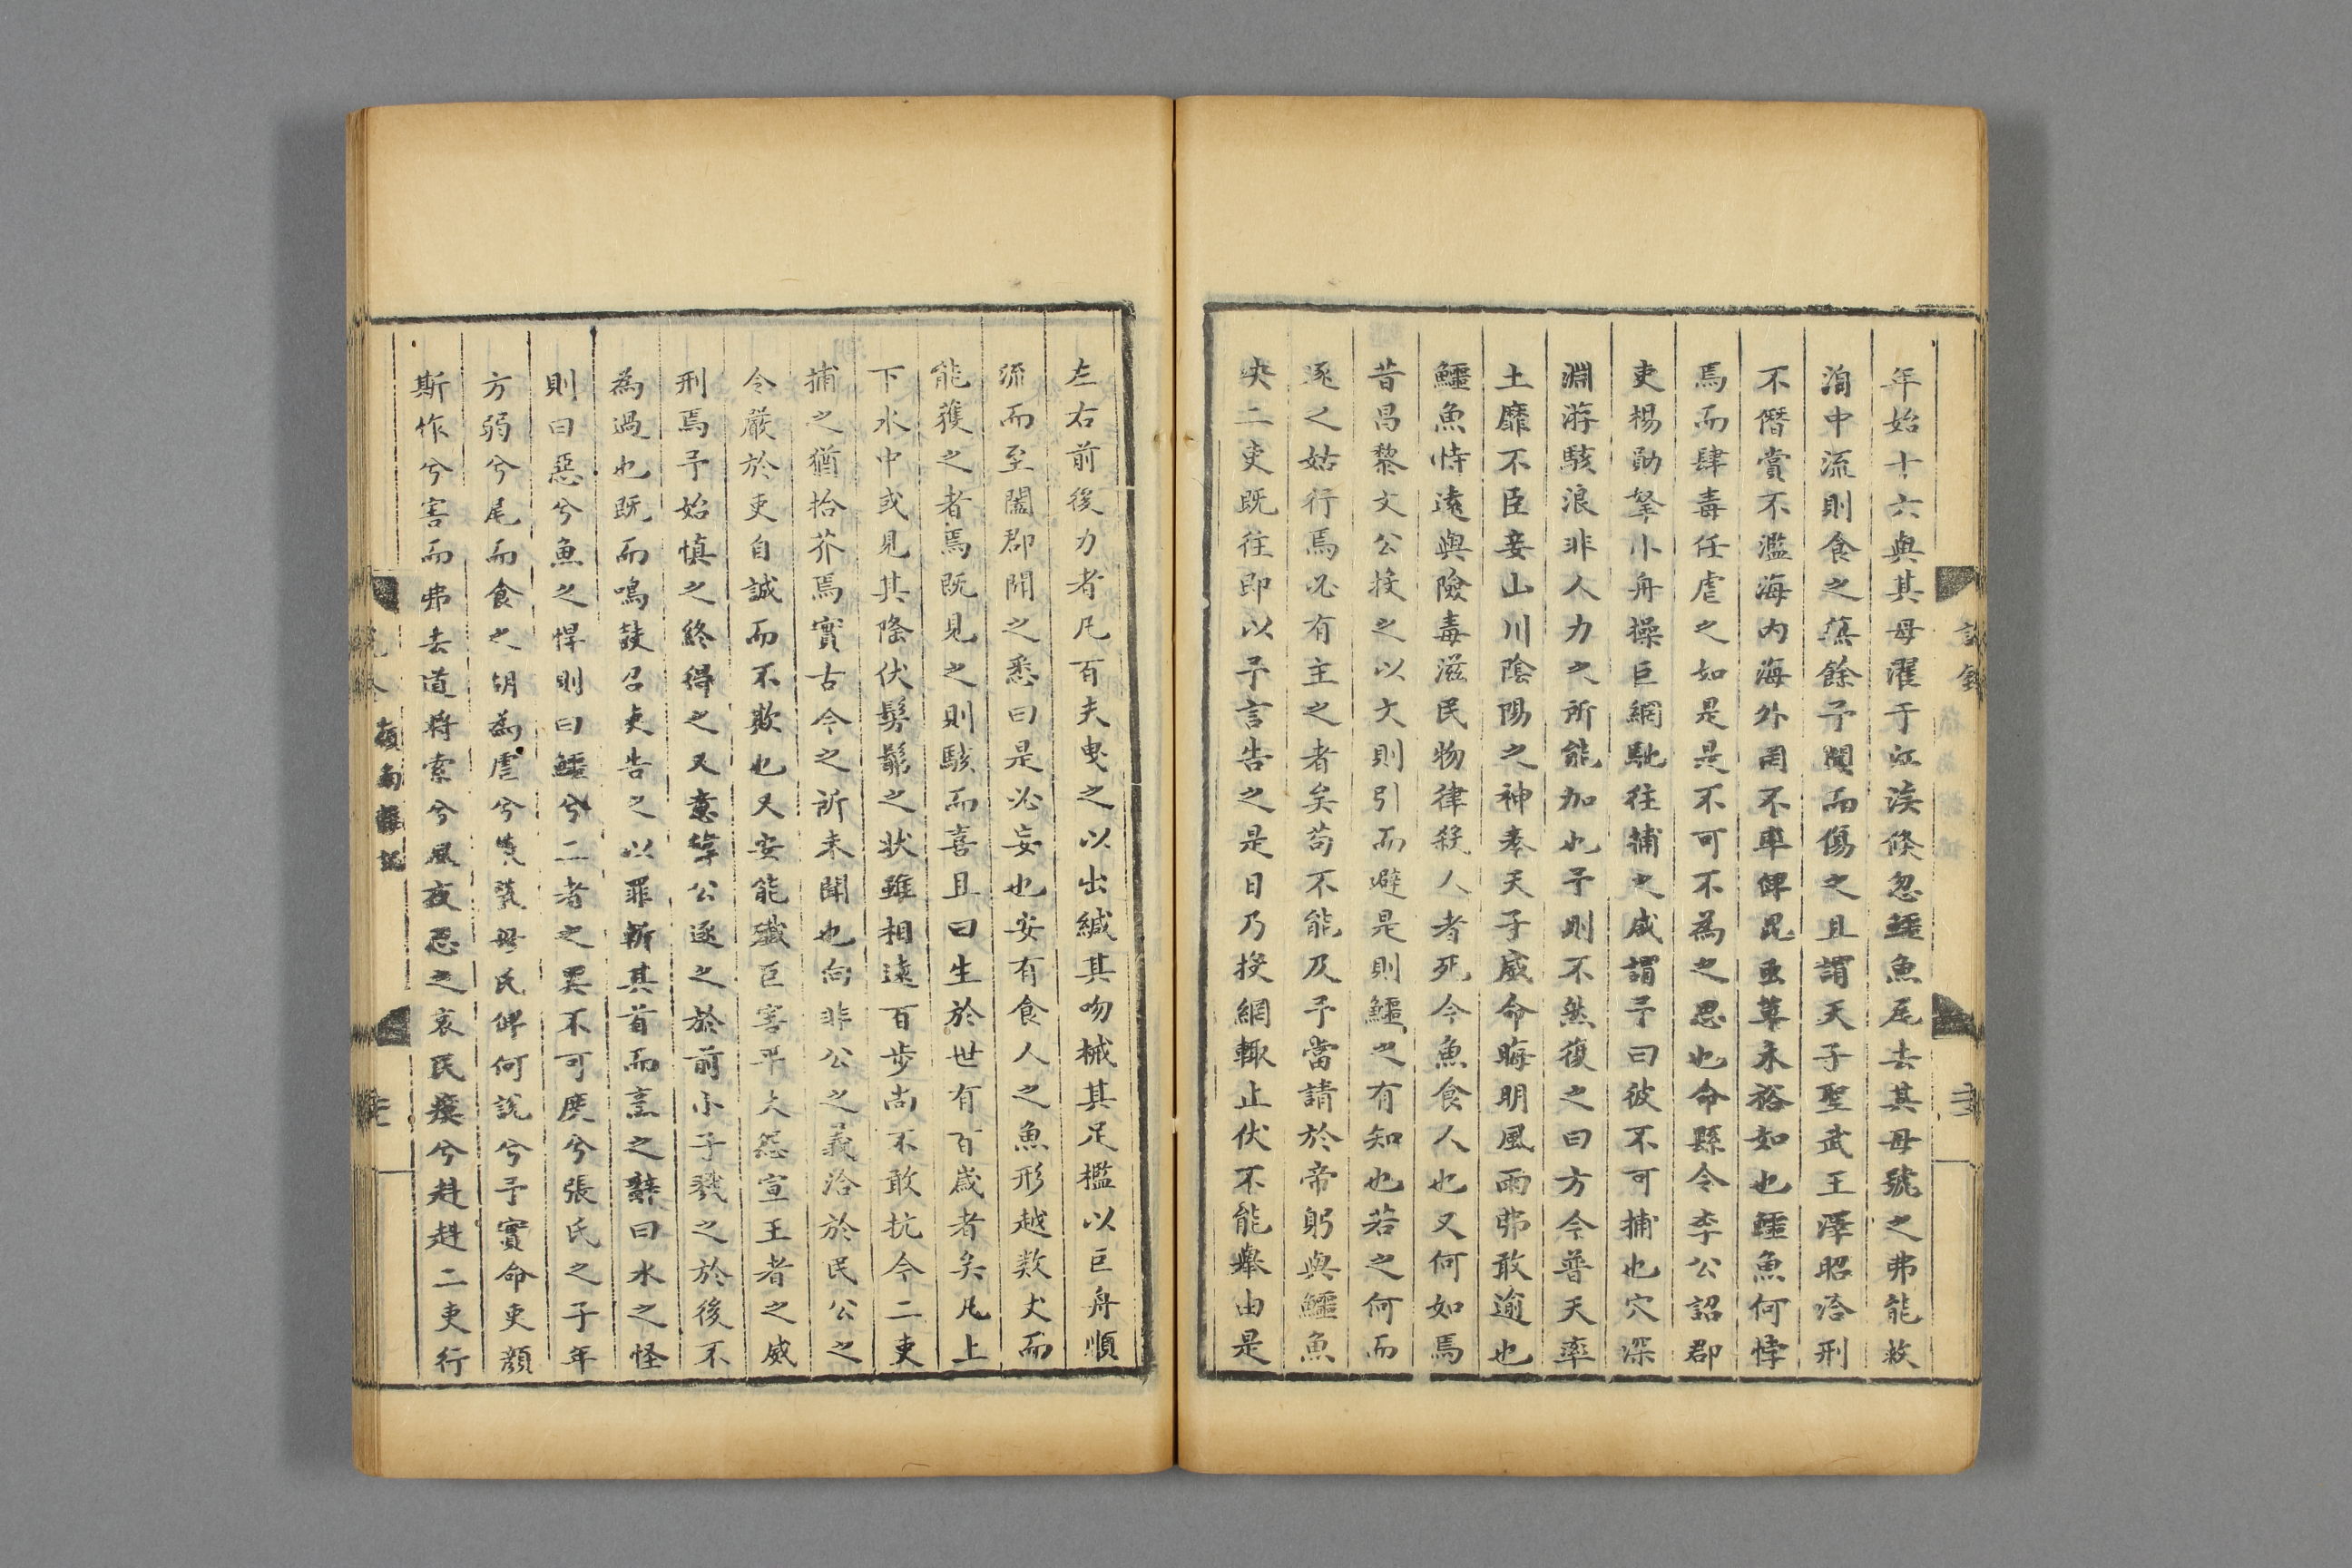 年始十六與其母濯于江涘倐忽鱷魚尾去其母號之弗能救
洎中流則食之無餘予聞而傷之且謂天子聖武王澤昭洽刑
不僭賞不濫海內海外罔不率俾昆虫草木裕如也鱷魚何悖
焉而肆毒任虐之如是是不可不為之思也命縣令李公詔郡
吏楊勛拏小舟操巨網馳往捕之咸謂予曰彼不可捕也穴深
淵游駭浪非人力之所能加也予則不然復之曰方今普天率
土靡不臣妾山川陰陽之神奉天子威命晦明風雨弗敢逾也
鱷魚恃遠與險毒滋民物律殺人者死今魚食人也又何如焉
昔昌黎文公投之以文則引而避是則鱷之有知也若之何而
逐之姑行焉必有主之者矣苟不能及予當請於帝躬與鱷魚
決二吏既往即以予言告之是日乃投網輙止伏不能舉由是
左右前後力者凡百夫曳之以出緘其吻械其足檻以巨舟順
流而至闔郡聞之悉曰是必妄也安有食人之魚形越數丈而
能獲之者焉既見之則駭而喜且曰生於世有百歲者矣凡上
下水中或見其隂伏髣髴之狀雖相遠百步尚不敢抗今二吏
捕之猶拾芥焉實古今之所未聞也向非公之義洽於民公之
令嚴於吏自誠而不欺也又安能殲巨害平大怨宣王者之威
刑焉予始慎之終得之又意韓公逐之於前小子戮之於後不
為過也既而鳴鼓召吏告之以罪斬其首而烹之辭曰水之怪
則曰惡兮魚之悍則曰鱷兮二者之異不可度兮張氏之子年
方弱兮尾而食之胡為虐兮煢煢母氏俾何說兮予實命吏顏
斯怍兮害而弗去道將索兮夙夜思之哀民瘼兮赳赳二吏行
嶺南雜記